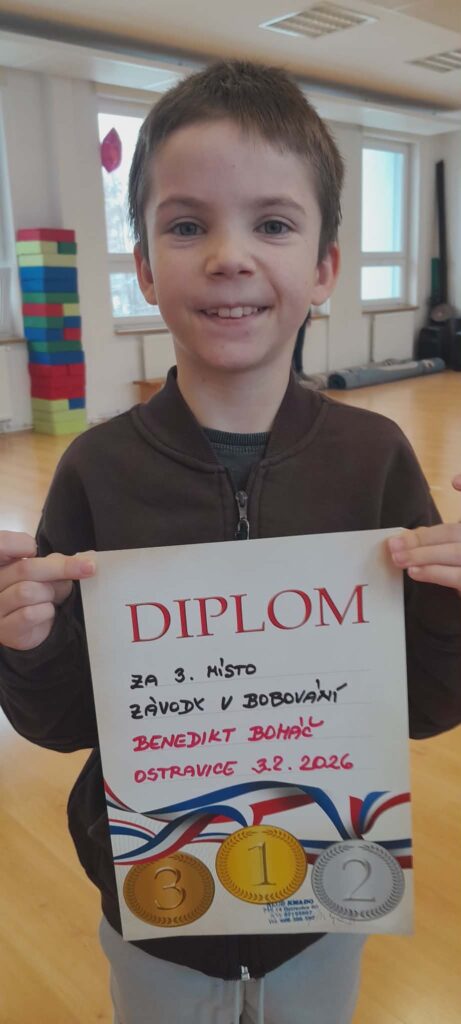 DIPLOM
ZA 3. MÍSTO
ZÁVODY V BOBOVÁNÍ
BENEDIKT BOHÁČ
OSTRAVICE 3.2.2026
3
1
2